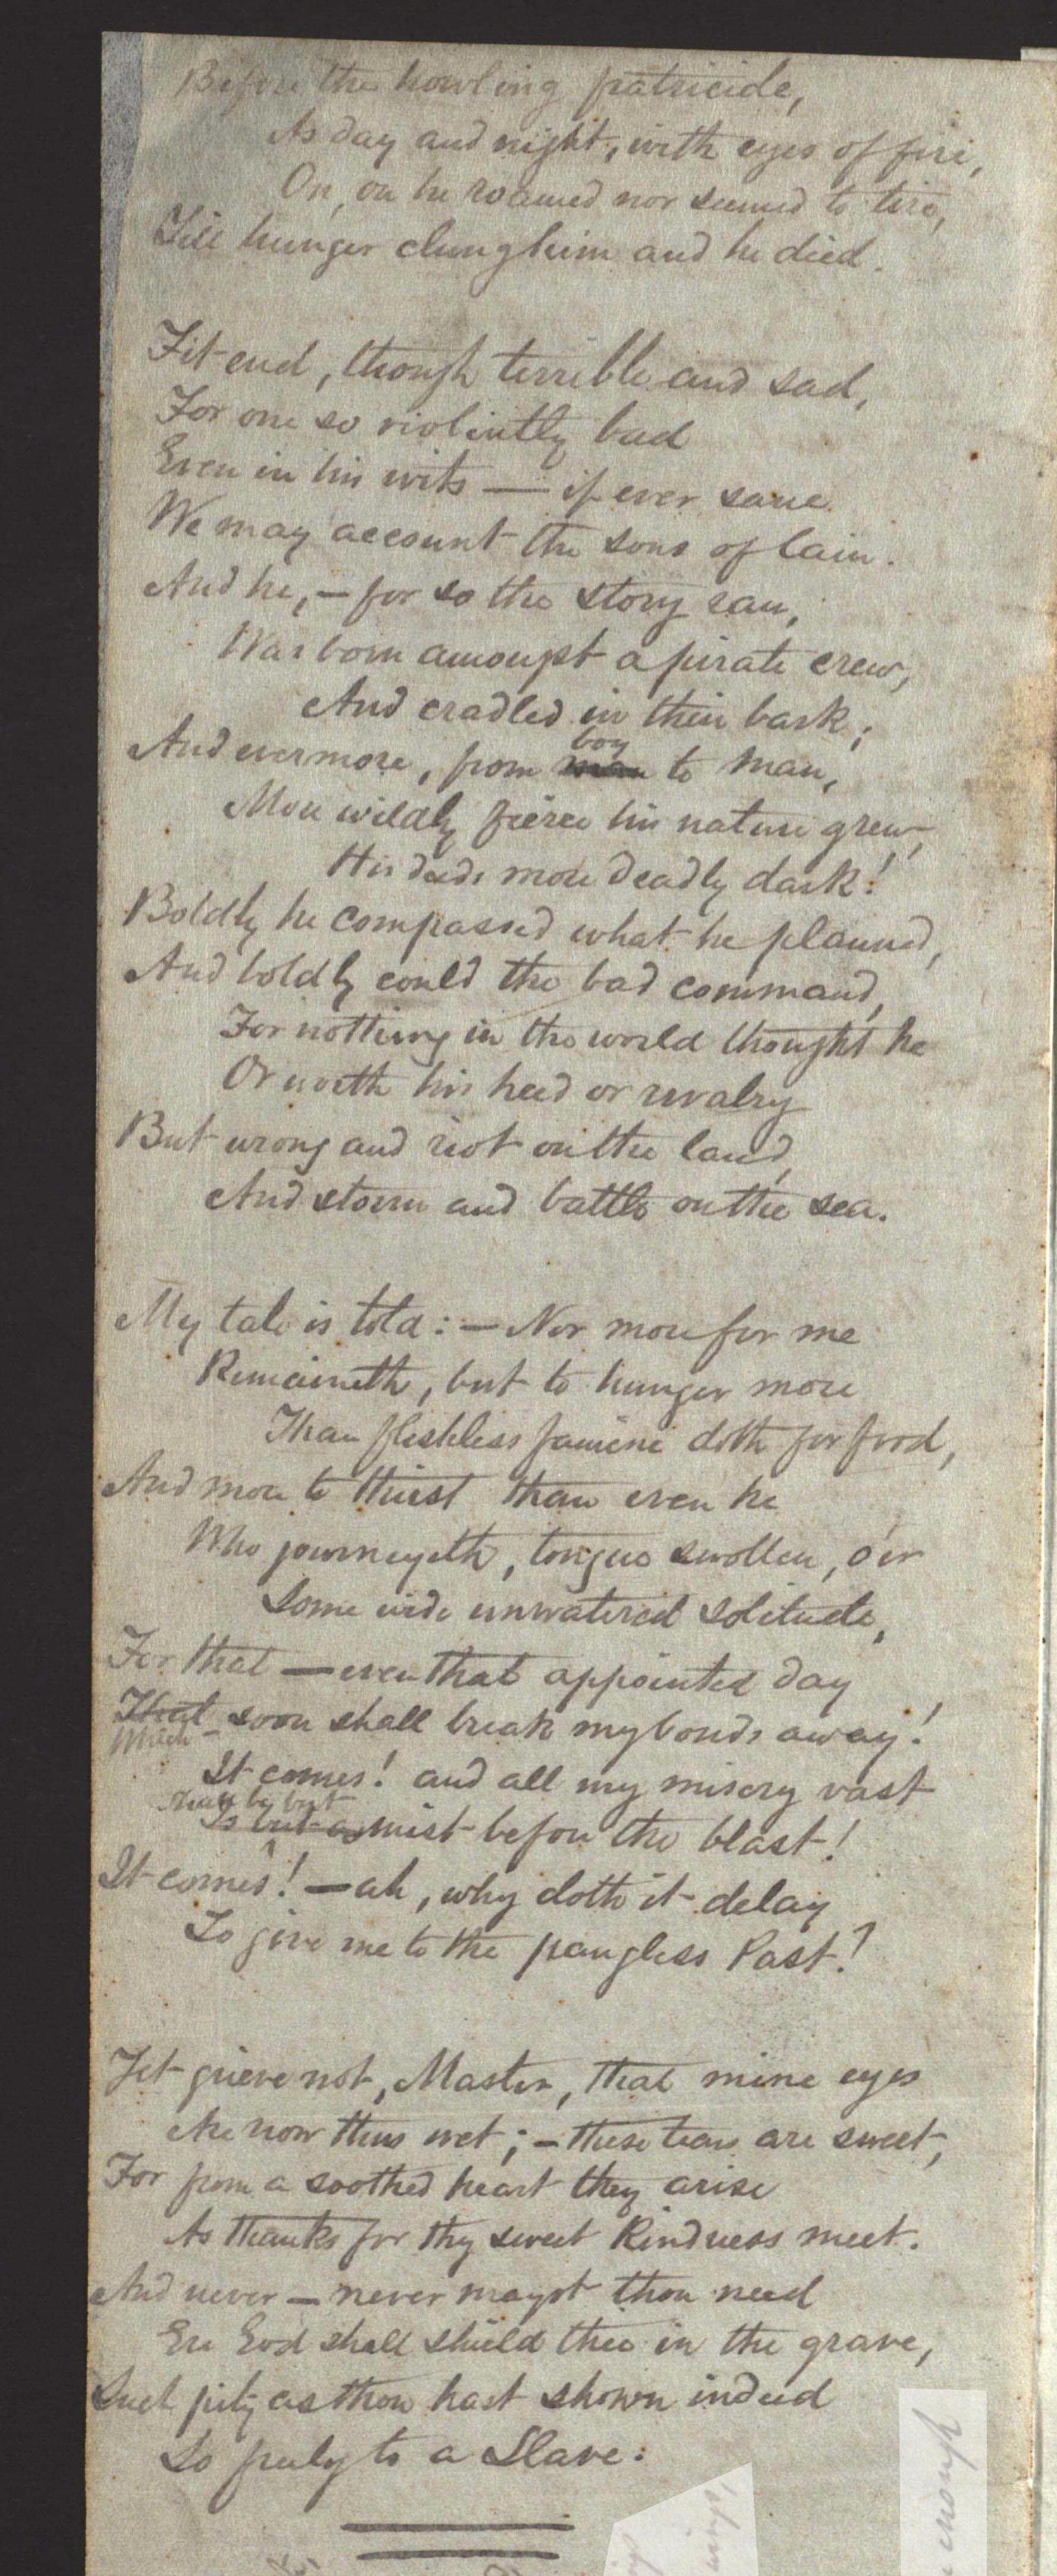 Before the howling patricide,
As day and night, with eyes of fire,
On, on he roamed nor seemed to tire,
Till hunger clung him and he died.
Fit end, though terrible and sad,
For one so violintly bad
Even in his wits — if ever sane
We may account the sons of Cain.
And he, — for so the story ran,
Was born amongst a pirate crew,
And cradled in their bark;
boy
And evermore, from man to man,
More wildly fierce his nature grew,
His deeds more deadly dark!
Boldly he compassed what he planned,
And boldly could the bad command,
For nothing in the world thought he
Or worth his heed or rivalry
But wrong and riot on the land,
And storm and battle on the sea.
My tale is told: — Nor more for me
Remaineth, but to hunger more
Than fleshless famine doth for food,
And more to thirst than even he
Who journeyeth, tongue swollen, o'er
Some wide unwatered solitude,
For that — even that appointed day
That soon shall break my bonds away!
Which —
It comes! and all my misery vast
shall be but
Is but a mist before the blast!
It comes! — ah, why doth it delay
To give me to the pangless Past!
Yet grieve not, Master, that mine eyes
Are now thus wet; — these tears are sweet,
For from a soothed heart they arise
As thanks for thy sweet kindness meet.
And never — never mayst thou need
Ere God shall shield thee in the grave,
Such pity as thou hast shown indeed
So freely to a Slave.
enough